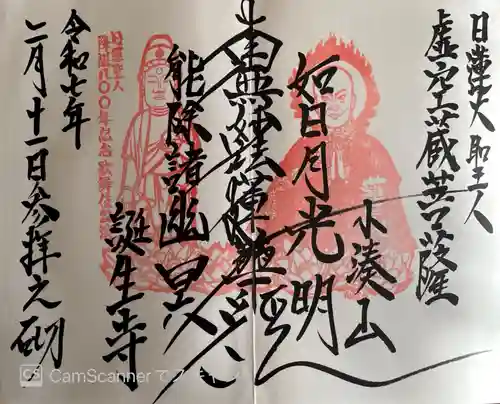 日蓮大聖人
虚空蔵菩薩
小湊山
如日月光明
南無妙法蓮華経
能除諸幽冥
誕生寺
日蓮聖人
降誕八〇〇年記念
令和七年
二月十一日参拝之砌
CS CamScanner でスキャン